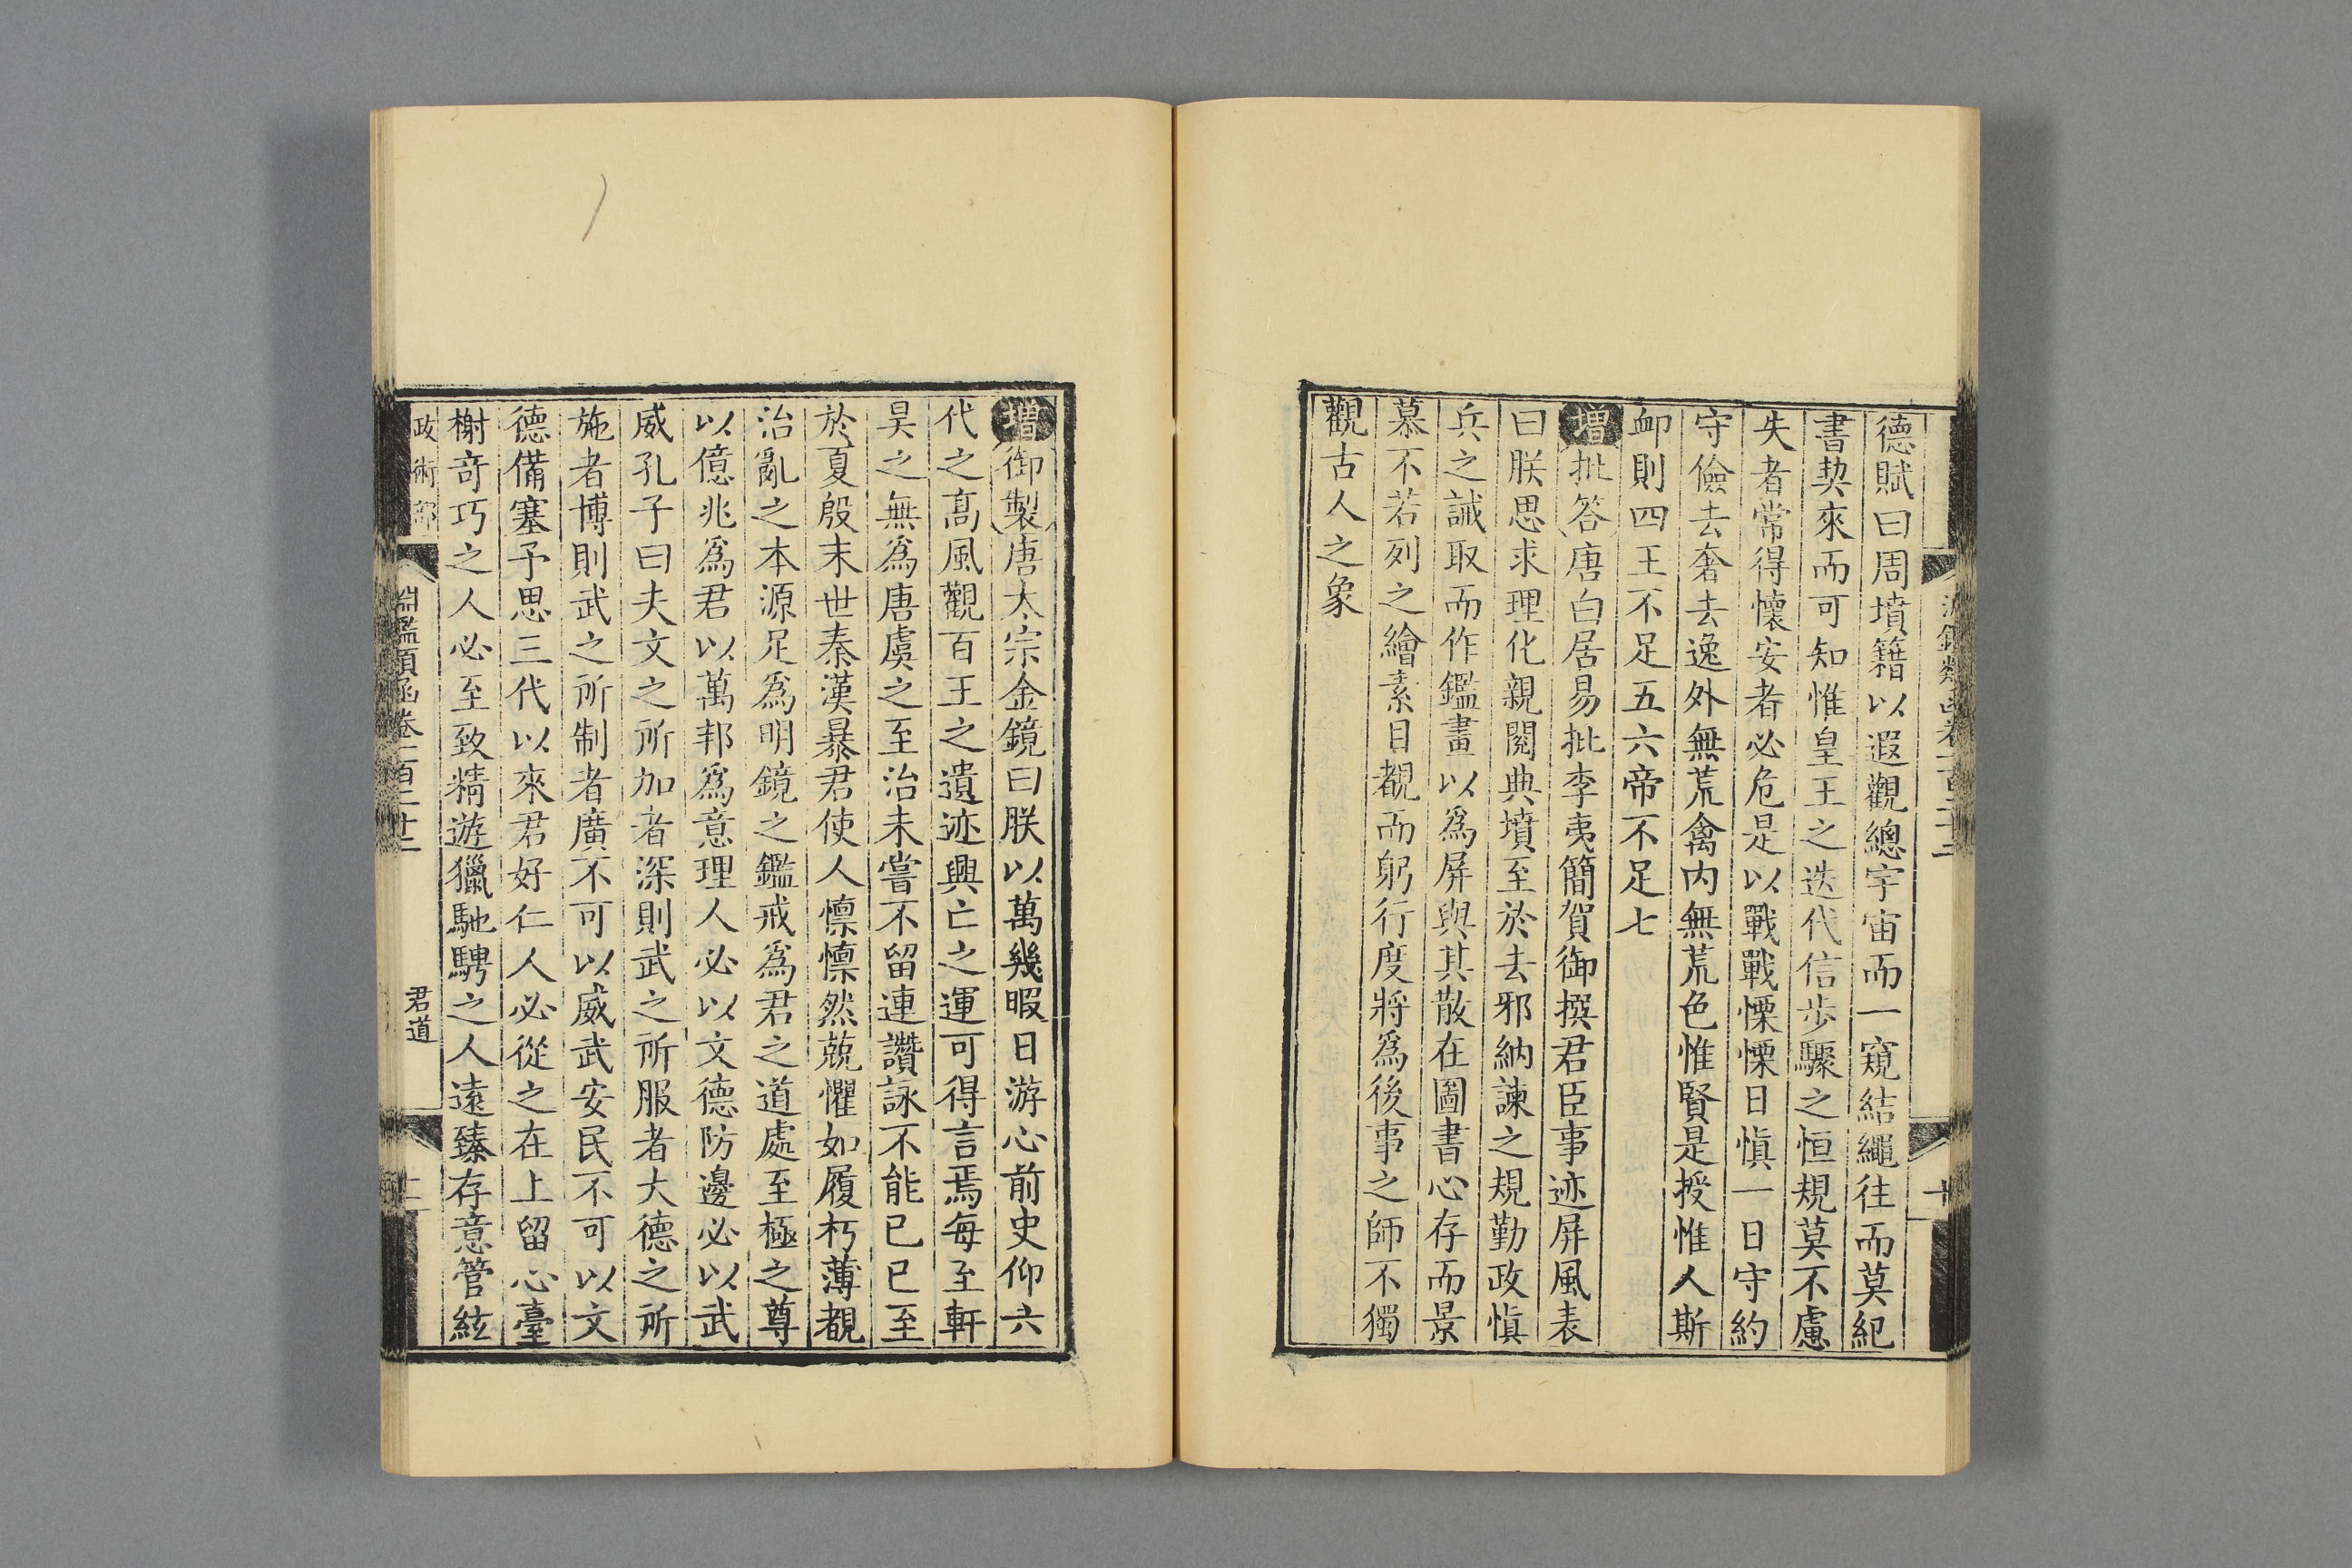 德賦曰周墳籍以遐觀總宇宙而一窺結繩往而莫紀
書契來而可知惟皇王之迭代信步驟之恒規莫不慮
失者常得懷安者必危是以戰戰慄慄日慎一日守約
守儉去奢去逸外無荒禽內無荒色惟賢是授惟人斯
䘏則四王不足五六帝不足七
增批答唐白居易批李夷簡賀御撰君臣事迹屏風表
曰朕思求理化親閱典墳至於去邪納諫之規勤政慎
兵之誡取而作鑑畫以為屏與其散在圖書心存而景
慕不若列之繪素目覩而躬行庶將為後事之師不獨
觀古人之象
增御製唐太宗金鏡曰朕以萬幾暇日游心前史仰六
代之高風觀百王之遺迹興亡之運可得言焉每至軒
昊之無為唐虞之至治未嘗不留連讚詠不能已已至
於夏殷末世秦漢暴君使人懍懍然兢懼如履朽薄覩
治亂之本源足為明鏡之鑑戒為君之道處至極之尊
以億兆為君以萬邦為意理人必以文德防邊必以武
威孔子曰夫文之所加者深則武之所服者大德之所
施者博則武之所制者廣不可以威武安民不可以文
德備塞予思三代以來君好仁人必從之在上留心臺
榭奇巧之人必至致精遊獵馳騁之人遠臻存意管絃
政術部
淵鑑類函卷一百二十二
君道
十一